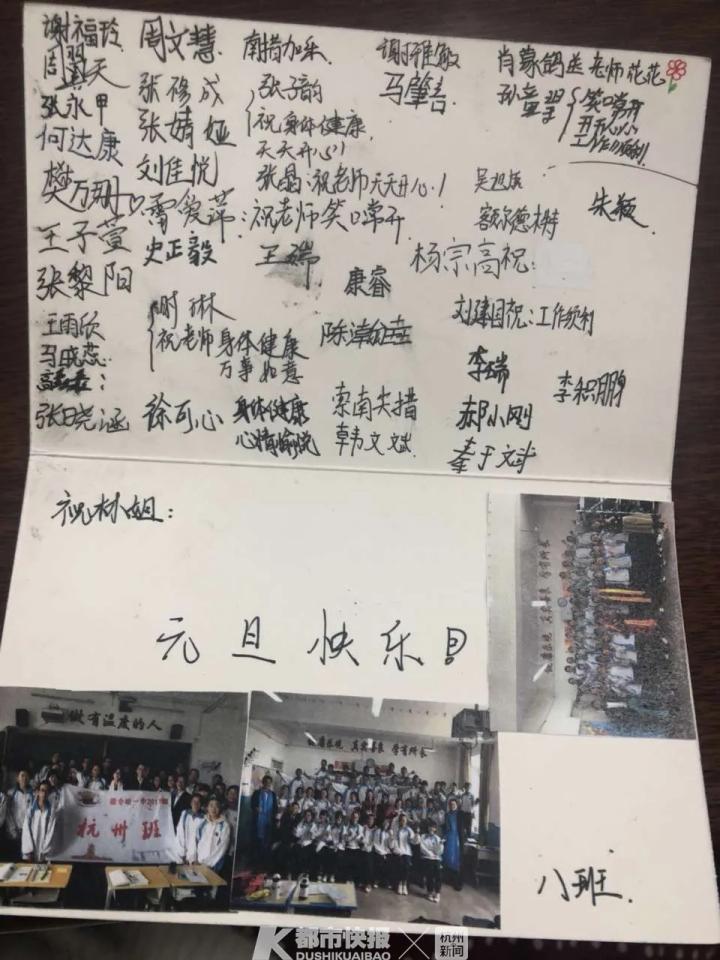 谢福玲 周文慧 南措加乐 谢雅敏 肖蒙鸽送老师花花
周 天 张修成 张子韵 马肇吉 孙童 笑口常开
张永甲 张婧娅 祝身体健康 天天开心 工作顺利
何达康 刘佳悦 天天开心!
樊万珊 雷爱萍:祝老师笑口常开
张晶:祝老师天天开心!
额尔德木特 朱颖
王子萱 史正毅 王瑞 杨宗高祝:
张黎阳 康睿
王雨欣 琳 刘建国祝:工作顺利
马晓蕊 祝老师身体健康
万事如意 李瑞 李积鹏
张晓涵 徐可心 身体健康 索南夫措 郝小刚
心情愉悦 韩文斌 于文斌
祝林姐:
元旦快乐!
八班.
做有温度的人
杭州班
真实善良 学有所长
都市快报 × 杭州新闻
DUSHIKUAIBAO